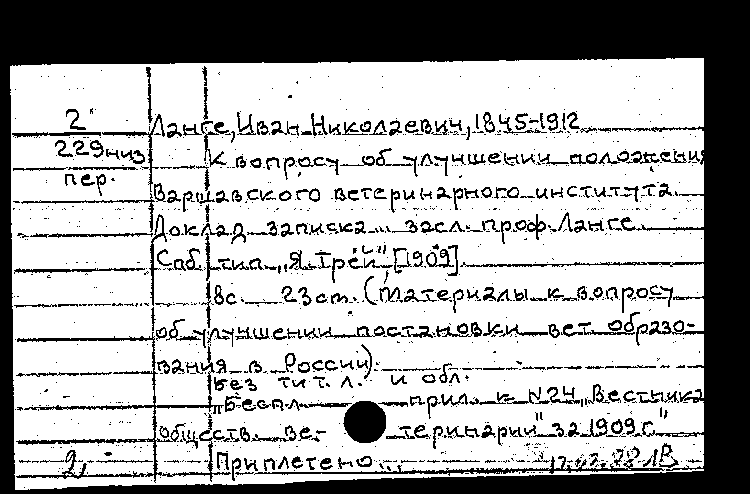 2 Ланге, Иван Николаевич, 1845-1912
229 низ
К вопросу об улучшении положения
пер.
Варшавского ветеринарного института.
Доклад. записка... засл. проф. Ланге.
Спб, тип. „Я. Трей", [1909].
8с. 23 см. (Материалы к вопросу
об улучшении постановки вет. образо-
вания в России).
Без тит. л. и обл.
„Беспл. прил. к N24 „Вестника
обществ. ве- теринарии" за 1909 г."
2, Приплетено...